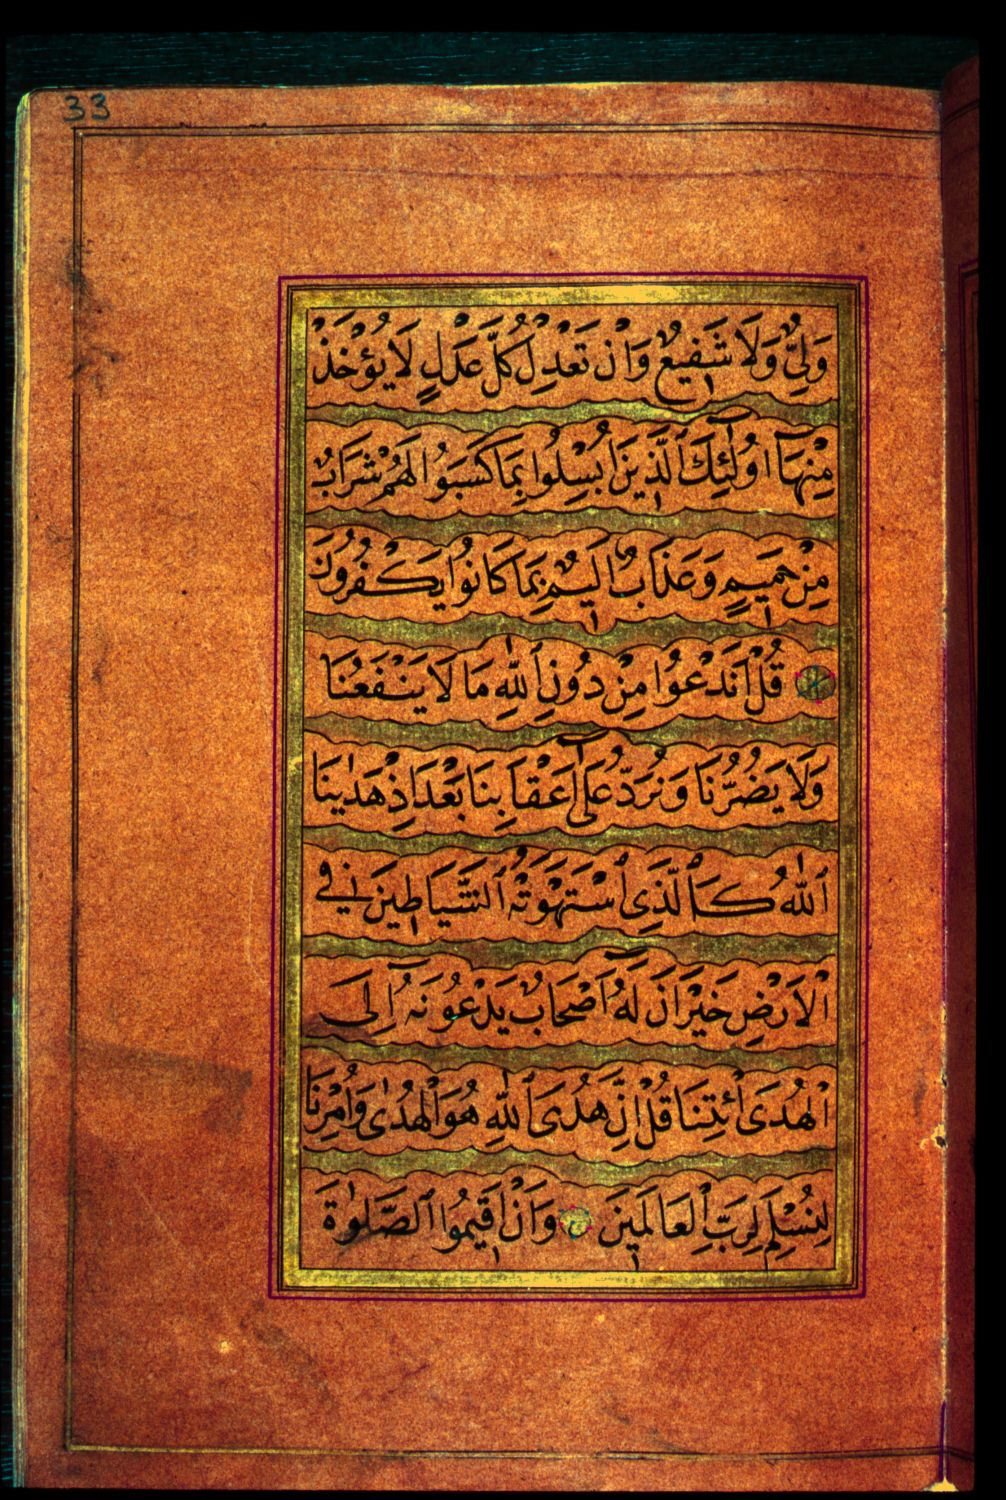 33
وَلِىٌّ وَلَا شَفِيعٌ وَاِنْ تَعْدِلْ كُلَّ عَدْلٍ لَا يُؤْخَذْ
مِنْهَا اُولٰئِكَ ٱلَّذِينَ اُبْسِلُوا بِمَا كَسَبُوا لَهُمْ شَرَابٌ
مِنْ حَمِيمٍ وَعَذَابٌ اَلِيمٌ بِمَا كَانُوا يَكْفُرُونَ
قُلْ اَنَدْعُوا مِنْ دُونِ ٱللّٰهِ مَا لَا يَنْفَعُنَا
وَلَا يَضُرُّنَا وَنُرَدُّ عَلٰٓى اَعْقَابِنَا بَعْدَ اِذْ هَدٰينَا
ٱللّٰهُ كَٱلَّذِى ٱسْتَهْوَتْهُ ٱلشَّيَاطِينُ فِى
ٱلْاَرْضِ حَيْرَانَ لَهُٓ اَصْحَابٌ يَدْعُونَهُٓ اِلَى
ٱلْهُدَى ٱئْتِنَا قُلْ اِنَّ هُدَى ٱللّٰهِ هُوَ ٱلْهُدٰى وَاُمِرْنَا
لِنُسْلِمَ لِرَبِّ ٱلْعَالَمِينَ وَاَنْ اَقِيمُوا ٱلصَّلٰوةَ